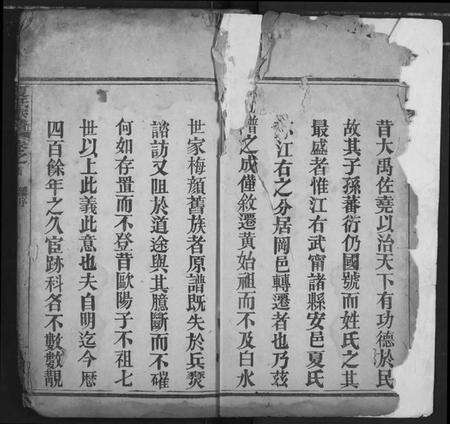 昔大禹佐堯以治天下有功德於民
故其子孫蕃衍仍國號而姓氏之其
最盛者惟江右武甯諸縣安邑夏氏
江右之分居岡邑轉遷者也乃茲
譜之成僅敘遷黃始祖而不及白水
世家梅顏舊族者原譜既失於兵燹
諮訪又阻於道途與其臆斷而不確
何如存置而不登昔歐陽子不祖七
世以上此義此意也夫自明迄今歷
四百餘年之久宦跡科名不數數覯